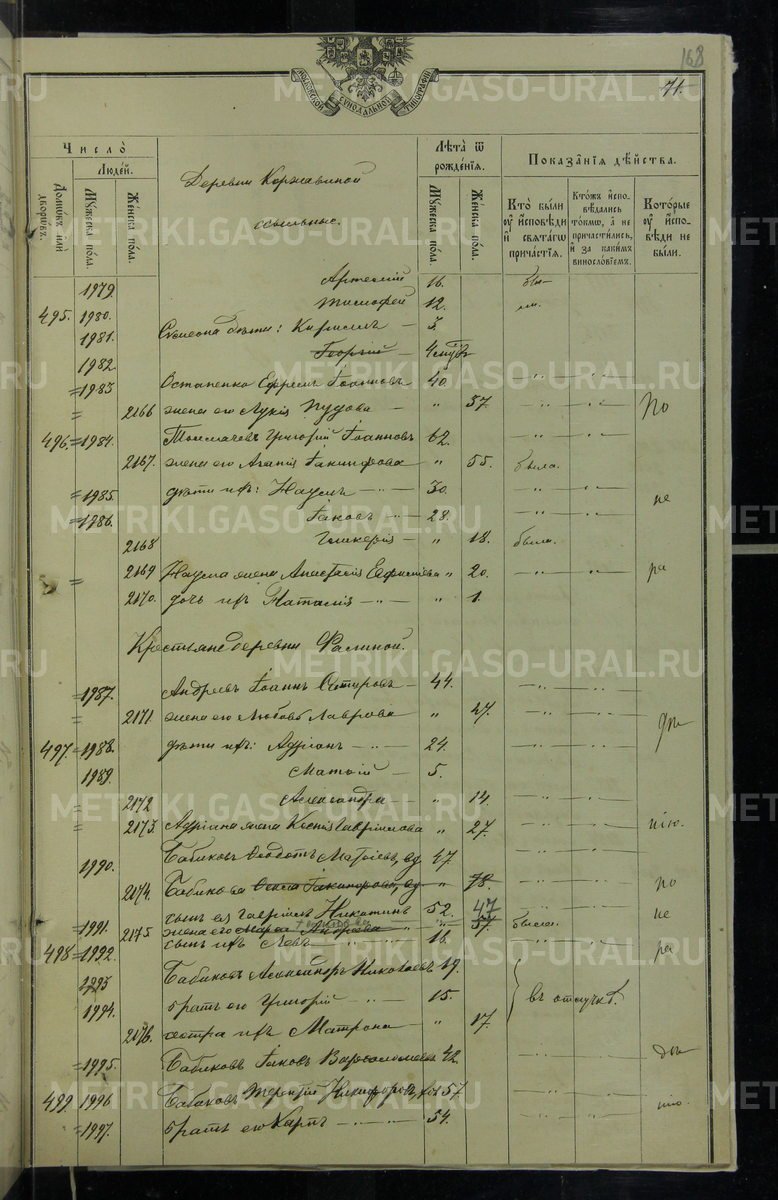 168
71.
МОСКОВСКОЙ СѴНОДАЛЬНОЙ ТИПОГРАФІИ
METRIKI.GASO-URAL.RU
Число̀
Людей.
Домовъ или дворовъ.
Мужеска пола.
Женска пола.
Деревни Коржавиной
ссыльные.
Лѣта ѿ рожденїя.
Мужеска пола.
Женска пола.
Показанїя дѣйства.
Кто были у исповѣди и свѧтагѡ причастїѧ.
Ктожъ исповѣдались токмо, а не причастились, и за какимъ винословїемъ.
Которые у исповѣди не были.
1979 Артемій 16.
495. 1980. Тимофей 12.
1981. Симеона дѣти: Кириллъ — 5.
1982. Георгій —
1983 Остапенко Ефремъ Іоанновъ 40.
2166 жена его Лукія Пудова — " 57. По
496. 1984. Толмачевъ Григорій Іоанновъ 62.
2167. жена его Агапія " 55. была.
1985. дѣти ихъ: Наумъ 30. не
1986. Іаковъ 28.
2168 Гликерія — " 18. была.
2169 Наума жена Анастасія " 20. ра
2170. дочь ихъ Наталія " 1.
Крестьяне деревни Фалиной.
1987. Андреевъ Іоаннъ 44.
2171 жена его Любовь Лаврова " 47.
497. 1988. дѣти ихъ: Адріанъ 24.
1989. Матѳій — 5.
2172 Александра " 14.
2173. Адріана жена Ксенія Гавриилова " 27. нію.
1990. Бабиковъ Ѳеодотъ вд. 47.
2174. Бабикова вд. " 78. по
1991. сынъ ея Гавріилъ Никитинъ 52. 47 не
2175 жена его Марѳа Андреева " 57. была.
498 1992. сынъ ихъ Левъ 16. ра
1993 Бабиковъ Александръ Николаевъ 19.
1994. братъ его Григорій 15. въ отлучкѣ.
2176. сестра ихъ Матрона " 17.
1995. Бабиковъ Іаковъ Варѳоломеевъ 42.
499. 1996 Бабиковъ Терентій Никифоровъ 57.
1997. братъ его Карпъ 54.